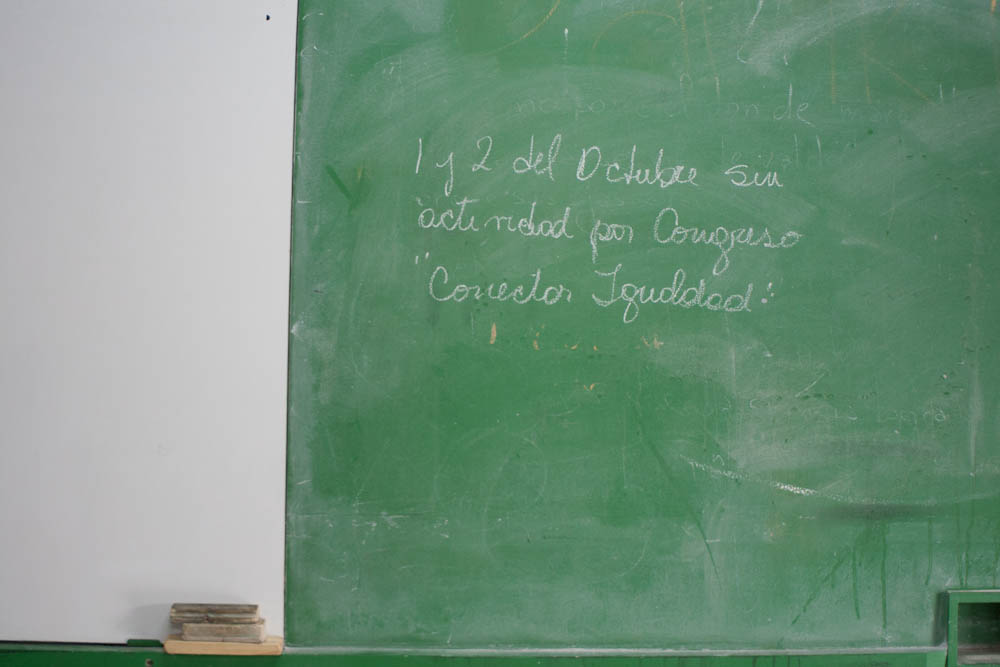 1 y 2 del Octubre sin
actividad por Congreso
"Conectar Igualdad".